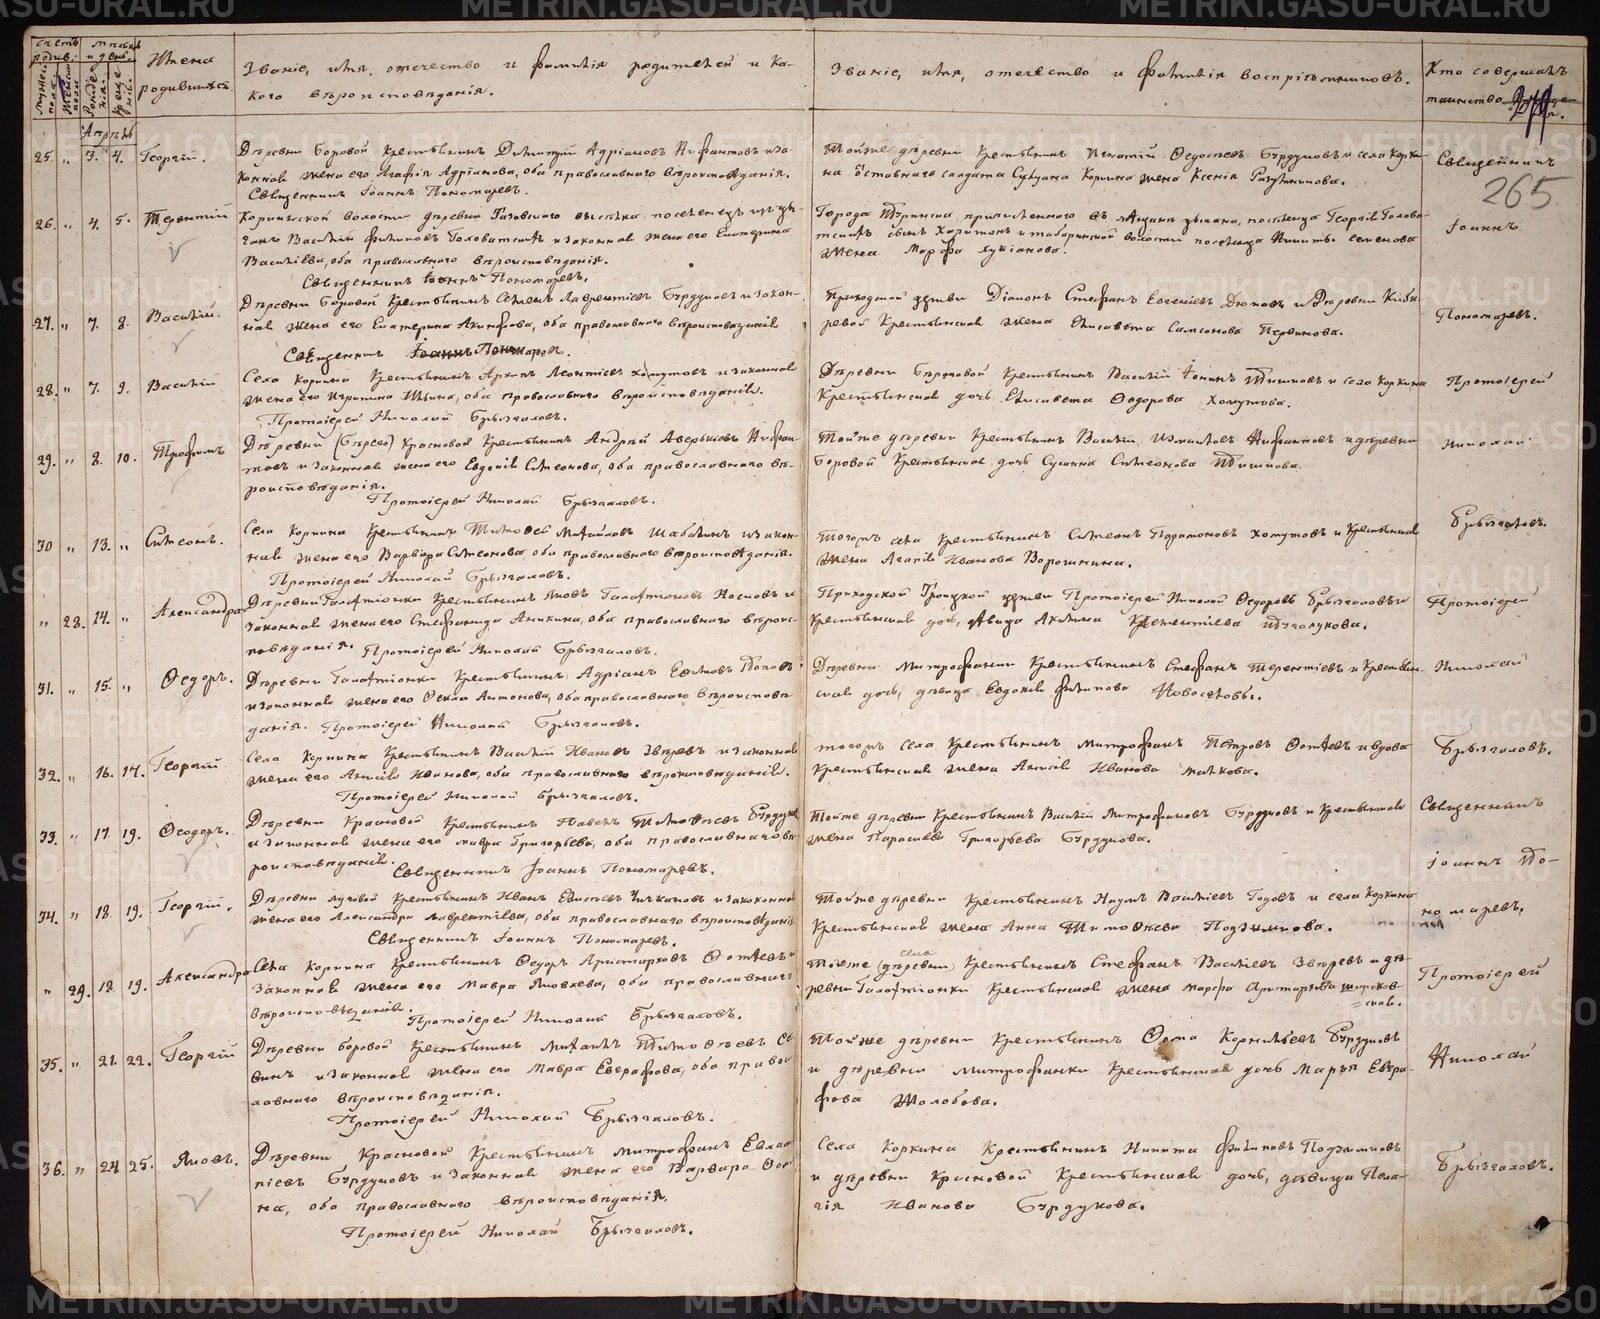 METRIKI.GASO-URAL.RU
Счетъ родив.
Мужес. полъ.
Женска полъ
Мѣсяцъ и день.
Рожденія.
Крещенія.
Имена родившихся
Званіе, имя, отечество и фамилія родителей и какого вѣроисповѣданія.
Званіе, имя, отечество и фамилія воспріемниковъ.
Кто совершалъ таинство
265
Апрѣль
25. " 3. 4. Георгій.
Деревни Боровой Крестьянинъ Димитрій Адріановъ Нифантовъ и за-
конная жена его Агафія Адріанова, оба православнаго вѣроисповѣданія.
Священникъ Іоаннъ Пономаревъ.
Тойже деревни Крестьянинъ Игнатій Федосѣевъ Бурдуковъ и села Корки-
на отставнаго солдата Коркина жена Ксенія
Священникъ
26. " 4. 5. Терентій
волости деревни поселенецъ изъ цы-
ганъ Василій Филиповъ и законная жена его Екатерина
Васильева, оба православнаго вѣроисповѣданія.
Священникъ Іоаннъ Пономаревъ.
Города Туринска, причисленнаго въ мѣщане цыгана, поселенца Георгія Голова-
сынъ Харитонъ и Таборинской волости поселенца Никиты Семенова
жена Марфа Лукіанова.
Іоаннъ
27. " 7. 8. Василій.
Деревни Боровой Крестьянинъ Семенъ Лаврентіевъ Бурдуковъ и закон-
ная жена его Екатерина Акинфова, оба православнаго вѣроисповѣданія
Священникъ Іоаннъ Пономаревъ.
Приходской церкви Діаконъ Стефанъ Евгеніевъ и Деревни Киба-
ревой Крестьянская жена Елисавета Самсонова Первинова.
Пономаревъ.
28. " 7. 9. Василій
Села Коркина Крестьянинъ Архипъ Леонтіевъ Хомутовъ и законная
жена его Ильина, оба православнаго вѣроисповѣданія.
Протоіерей Николай Брызгаловъ.
Деревни Береговой Крестьянинъ Василій и села Коркина
Крестьянская дочь Елисавета Федорова Хомутова.
Протоіерей
29. " 8. 10. Трофимъ
Деревни (Берего) Красновой Крестьянинъ Андрей Аверкіевъ Нифан-
товъ и законная жена его Евдокія Симеонова, оба православнаго вѣ-
роисповѣданія.
Протоіерей Николай Брызгаловъ.
Тойже деревни Крестьянинъ Василій Измаиловъ Нифантовъ и деревни
Боровой Крестьянская дочь Сусанна Симеонова
Николай
30 " 13. " Симеонъ.
Села Коркина Крестьянинъ Тимофей Михайловъ Шабалинъ и закон-
ная жена его Варвара Симеонова, оба православнаго вѣроисповѣданія.
Протоіерей Николай Брызгаловъ.
Тогожъ села Крестьянинъ Симеонъ Парамоновъ Хомутовъ и Крестьянская
жена Агапія Иванова Ворошнина.
Брызгаловъ.
" 28. 14. " Александра
Деревни Галактіонки Крестьянинъ Яковъ Галактіоновъ Носковъ и
законная жена его Стефанида Аникина, оба православнаго вѣроис-
повѣданія. Протоіерей Николай Брызгаловъ.
Приходской Троицкой церкви Протоіерей Николай Федоровъ Брызгаловъ и
Крестьянская дочь, девица Акилина Клементіева
Протоіерей
31. " 15. " Федоръ.
Деревни Галактіонки Крестьянинъ Адріанъ Ефимовъ Поповъ
и законная жена его Фекла Антонова, оба православнаго вѣроисповѣ-
данія. Протоіерей Николай Брызгаловъ.
Деревни Митрофанки Крестьянинъ Стефанъ Терентіевъ и Крестьян-
ская дочь, девица Евдокія Филипова Новоселовы.
Николай
32. " 16. 17. Георгій
Села Коркина Крестьянинъ Василій Ивановъ Звѣревъ и законная
жена его Анисія Иванова, оба православнаго вѣроисповѣданія.
Протоіерей Николай Брызгаловъ.
тогожъ села Крестьянинъ Митрофанъ Петровъ Фотѣевъ и вдова
Крестьянская жена Анисія Иванова Малкова.
Брызгаловъ.
33. " 17. 19. Феодоръ.
Деревни Красновой Крестьянинъ Павелъ Тимофѣевъ Бурдуковъ
и законная жена его Мавра Григорьева, оба православнаго вѣ-
роисповѣданія. Священникъ Іоаннъ Пономаревъ.
Тойже деревни Крестьянинъ Василій Митрофановъ Бурдуковъ и Крестьянская
жена Парасковья Григорьева Бурдукова.
Священникъ
Іоаннъ По-
34. " 18. 19. Георгій.
Деревни Луговой Крестьянинъ Иванъ Елисѣевъ Чичкановъ и законная
жена его Александра Лаврентіева, оба православнаго вѣроисповѣданія
Священникъ Іоаннъ Пономаревъ.
Тойже деревни Крестьянинъ Наумъ Васильевъ Годовъ и села Коркина
Крестьянская жена Анна Тимофѣева Подзимкова.
номаревъ.
" 29. 18. 19. Александра
Села Коркина Крестьянинъ Федоръ Аристарховъ Фотѣевъ и
законная жена его Мавра Яковлева, оба православнаго
вѣроисповѣданія. Протоіерей Николай Брызгаловъ.
Тогоже (деревни) села Крестьянинъ Стефанъ Васильевъ Звѣревъ и де-
ревни Галактіонки Крестьянская жена Марфа
Протоіерей
35. " 21. 22. Георгій
Деревни Боровой Крестьянинъ Михаилъ Тимофѣевъ Са-
винъ и законная жена его Мавра Евграфова, оба право-
славнаго вѣроисповѣданія.
Протоіерей Николай Брызгаловъ.
Тойже деревни Крестьянинъ Фома Корнильевъ Бурдуковъ
и деревни Митрофанки Крестьянская дочь Марья Евгра-
фова Жолобова.
Николай
36. " 24 25. Яковъ.
Деревни Красновой Крестьянинъ Митрофанъ Евлам-
піевъ Бурдуковъ и законная жена его Варвара Фоми-
на, оба православнаго вѣроисповѣданія.
Протоіерей Николай Брызгаловъ.
Села Коркина Крестьянинъ Никита Филиповъ Подзимковъ
и деревни Красновой Крестьянская дочь, девица Пела-
гія Иванова Бурдукова.
Брызгаловъ.
METRIKI.GASO-URAL.RU